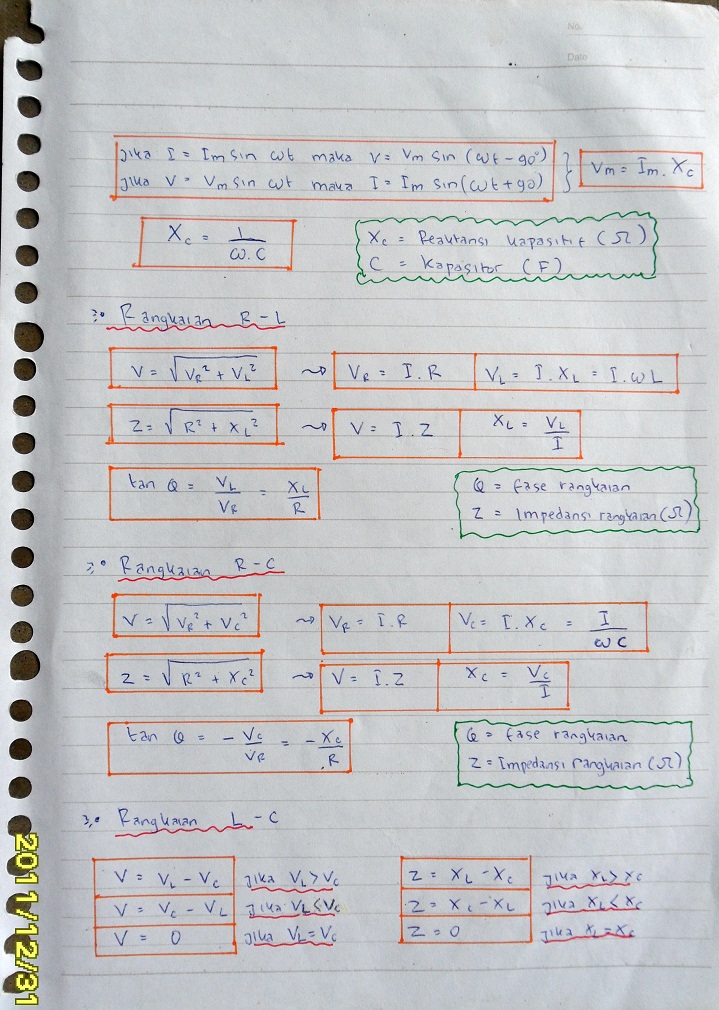 No.
Date
Jika I = Im sin ωt maka V = Vm sin (ωt - 90°)
Jika V = Vm sin ωt maka I = Im sin (ωt + 90)
} Vm = Im . Xc
Xc = 1 / ω.C
Xc = Reaktansi kapasitif (Ω)
C = Kapasitor (F)
Rangkaian R - L
V = √VR² + VL² → VR = I . R VL = I . XL = I . ωL
Z = √R² + XL² → V = I . Z XL = VL / I
tan Q = VL / VR = XL / R
Q = fase rangkaian
Z = Impedansi rangkaian (Ω)
Rangkaian R - C
V = √VR² + VC² → VR = I . R VC = I . XC = I / ωC
Z = √R² + XC² → V = I . Z XC = VC / I
tan Q = - VC / VR = - XC / R
Q = fase rangkaian
Z = Impedansi rangkaian (Ω)
Rangkaian L - C
V = VL - VC Jika VL > VC Z = XL - XC Jika XL > XC
V = VC - VL Jika VL < VC Z = XC - XL Jika XL < XC
V = 0 Jika VL = VC Z = 0 Jika XL = XC
2011/12/31